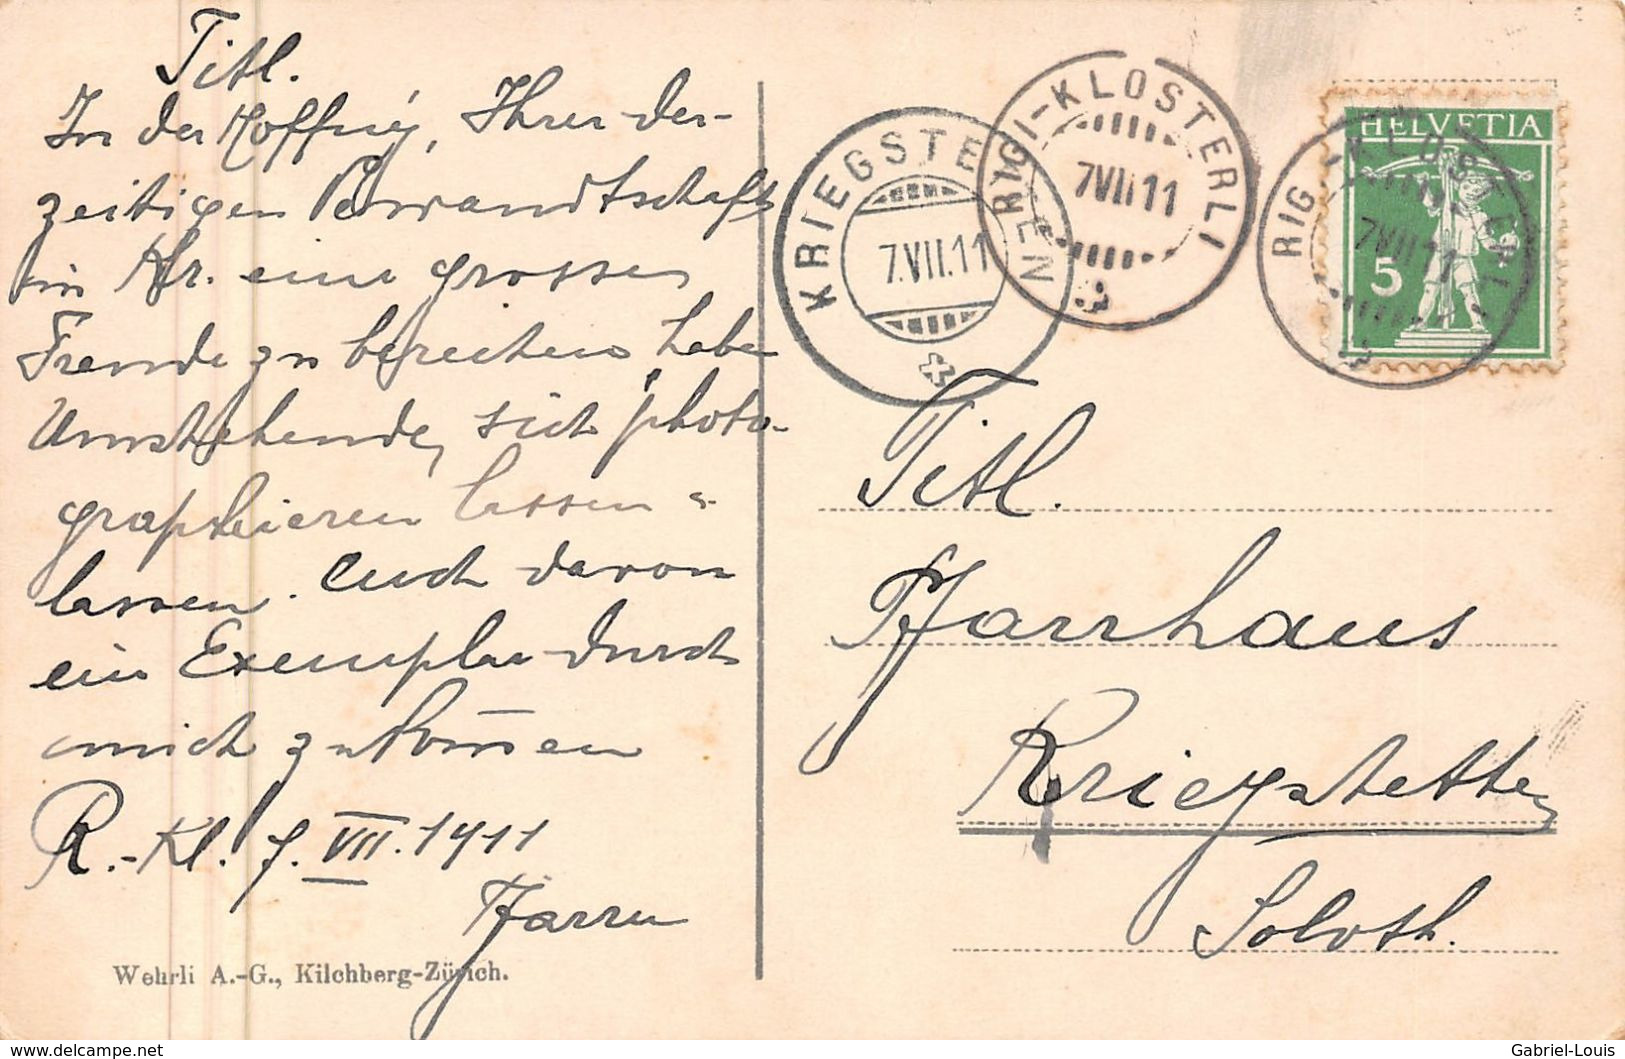 Titl.
In der Hoffng, Ihrer der-
zeitigen Verwandtschaft
in Kr. eine grosse
Freude zu bereiten, haben
Umstehende, sich photo-
graphieren lassen u.
lassen. Auch davon
ein Exemplar durch
mich zukom̄en
R.-Kl. 7. VII. 1911
Pfarrer
Wehrli A.-G., Kilchberg-Zürich.
KRIEGSTETTEN
7.VII.11
RIGI-KLOSTERLI
7VII11
RIGI-KLOSTERLI
7VII11
HELVETIA
5
Titl.
Pfarrhaus
Kriegstetten
Soloth.
delcampe.net
Gabriel-Louis